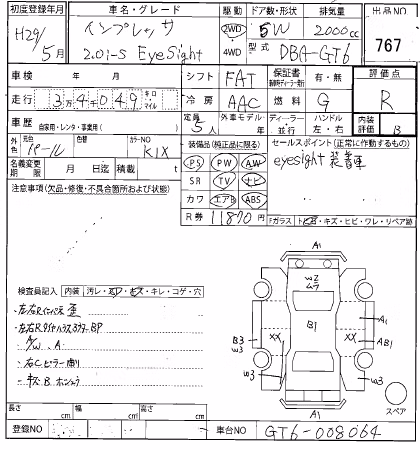 初度登録年月 車名・グレード 駆動 ドア数・形状 排気量 出品NO
H29/5月 インプレッサ 2.0i-S EyeSight 2WD 4WD 5W 2000cc 767
型式 DBA-GT6
車検 年 月 シフト FAT 保証書 有・無 評価点
走行 34049 キロ マイル 冷房 AAC 燃料 G R
車歴 自家用・レンタ・事業用( ) 定員 5人 外車モデル 年 ディーラー・並行 ハンドル 左・右 内装評価 B
外色 元色 パール 色替 カラーNO K1X 装備品(純正品に限る) セールスポイント(正常に作動するもの)
名義変更期限 月 日迄 積載 t PS PW AW eyesight 装着車
注意事項(欠品・修復・不具合箇所および状態) SR TV ナビ
カワ エアB ABS
R券 11870円 Fガラス
A1
W2
ムラ
検査員記入 内装 汚レ・スレ・キズ・キレ・コゲ・穴
B1
A1
B3
W3
XX
XX
AB1
・左右Rインパネ 歪
・左右Rタイヤハウスカクフ BP
・A/W. A
・右Cピラー 曲り
W3
W3
W3
A1
スペア
長さ cm 幅 cm 高さ cm
登録NO 車台NO GT6-008064